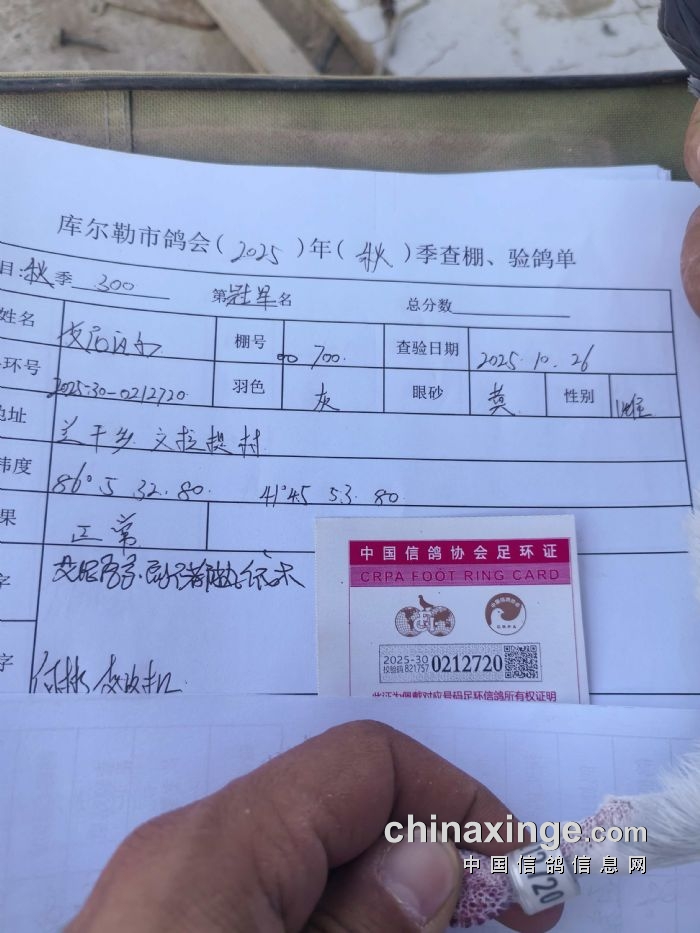 库尔勒市鸽会(2025)年(秋)季查棚、验鸽单
目:秋季 300 第冠军名 总分数
姓名 棚号 700. 查验日期 2025.10.26
环号 2025-30-0212720 羽色 灰 眼砂 黄 性别 雌
地址 兰干乡
纬度 86°.5 32.80. 41°45 53.80
果 正常
字
字
中国信鸽协会足环证
CRPA FOOT RING CARD
2025-30 0212720
校验码 821757
此证为佩戴对应号码足环信鸽所有权证明
chinaxinge.com
中国信鸽信息网